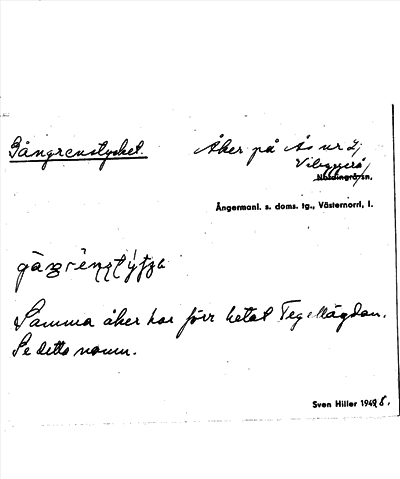 Gångrenstycket.
Åker på Ås nr 2,
Vibyggerå
Nordingrå sn.
Ångermanl. s. doms. tg., Västernorrl, l.
Samma åker har förr hetat Tegelkägdan.
Se detta namn.
Sven Hiller 1948.